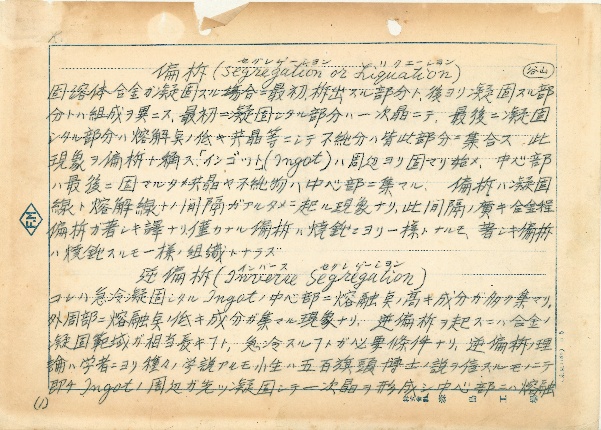 セグレゲーション リクエーション
偏析 (Segregation or Liquation)
谷山
固溶体合金ガ凝固スル場合ニ最初ニ析出スル部分ト、後ヨリ凝固スル部
分トハ組成ヲ異ニス、最初ニ凝固シタル部分ハ一次晶ニテ、最後ニ凝固
シタル部分ハ熔解点ノ低キ共晶等ニシテ不純分ハ皆此部分ニ集合ス、此
現象ヲ偏析ト稱ス、「インゴット」(Ingot)ハ周辺ヨリ固マリ始メ、中心部
ハ最後ニ固マルタメ共晶ヤ不純物ハ中心部ニ集マル、偏析ハ凝固
線ト熔解線トノ間隔ガアルタメニ起ル現象ナリ、此間隔ノ廣キ合金程
偏析ガ著シキ譯ナリ僅カナル偏析ハ焼鈍ニヨリ一様トナルモ、著シキ偏析
ハ焼鈍スルモ一様ノ組織トナラズ
インバース セグレゲーション
逆偏析 (Inverse Segregation)
コレハ急冷凝固シタル Ingotノ中心部ニ熔融点ノ高キ成分ガ多ク集マリ、
外周部ニ熔融点ノ低キ成分ガ集マル現象ナリ、逆偏析ヲ起スニハ合金ノ
凝固範域ガ相当長キコト、急冷スルコトガ必要條件ナリ、逆偏析ノ理
論ハ学者ニヨリ種々ノ学説アルモ小生ハ五百旗頭博士ノ説ヲ信スルモノニテ
即チ Ingotノ周辺ガ先ヅ凝固シテ一次晶ヲ形成シ中心部ニハ熔融
(1)